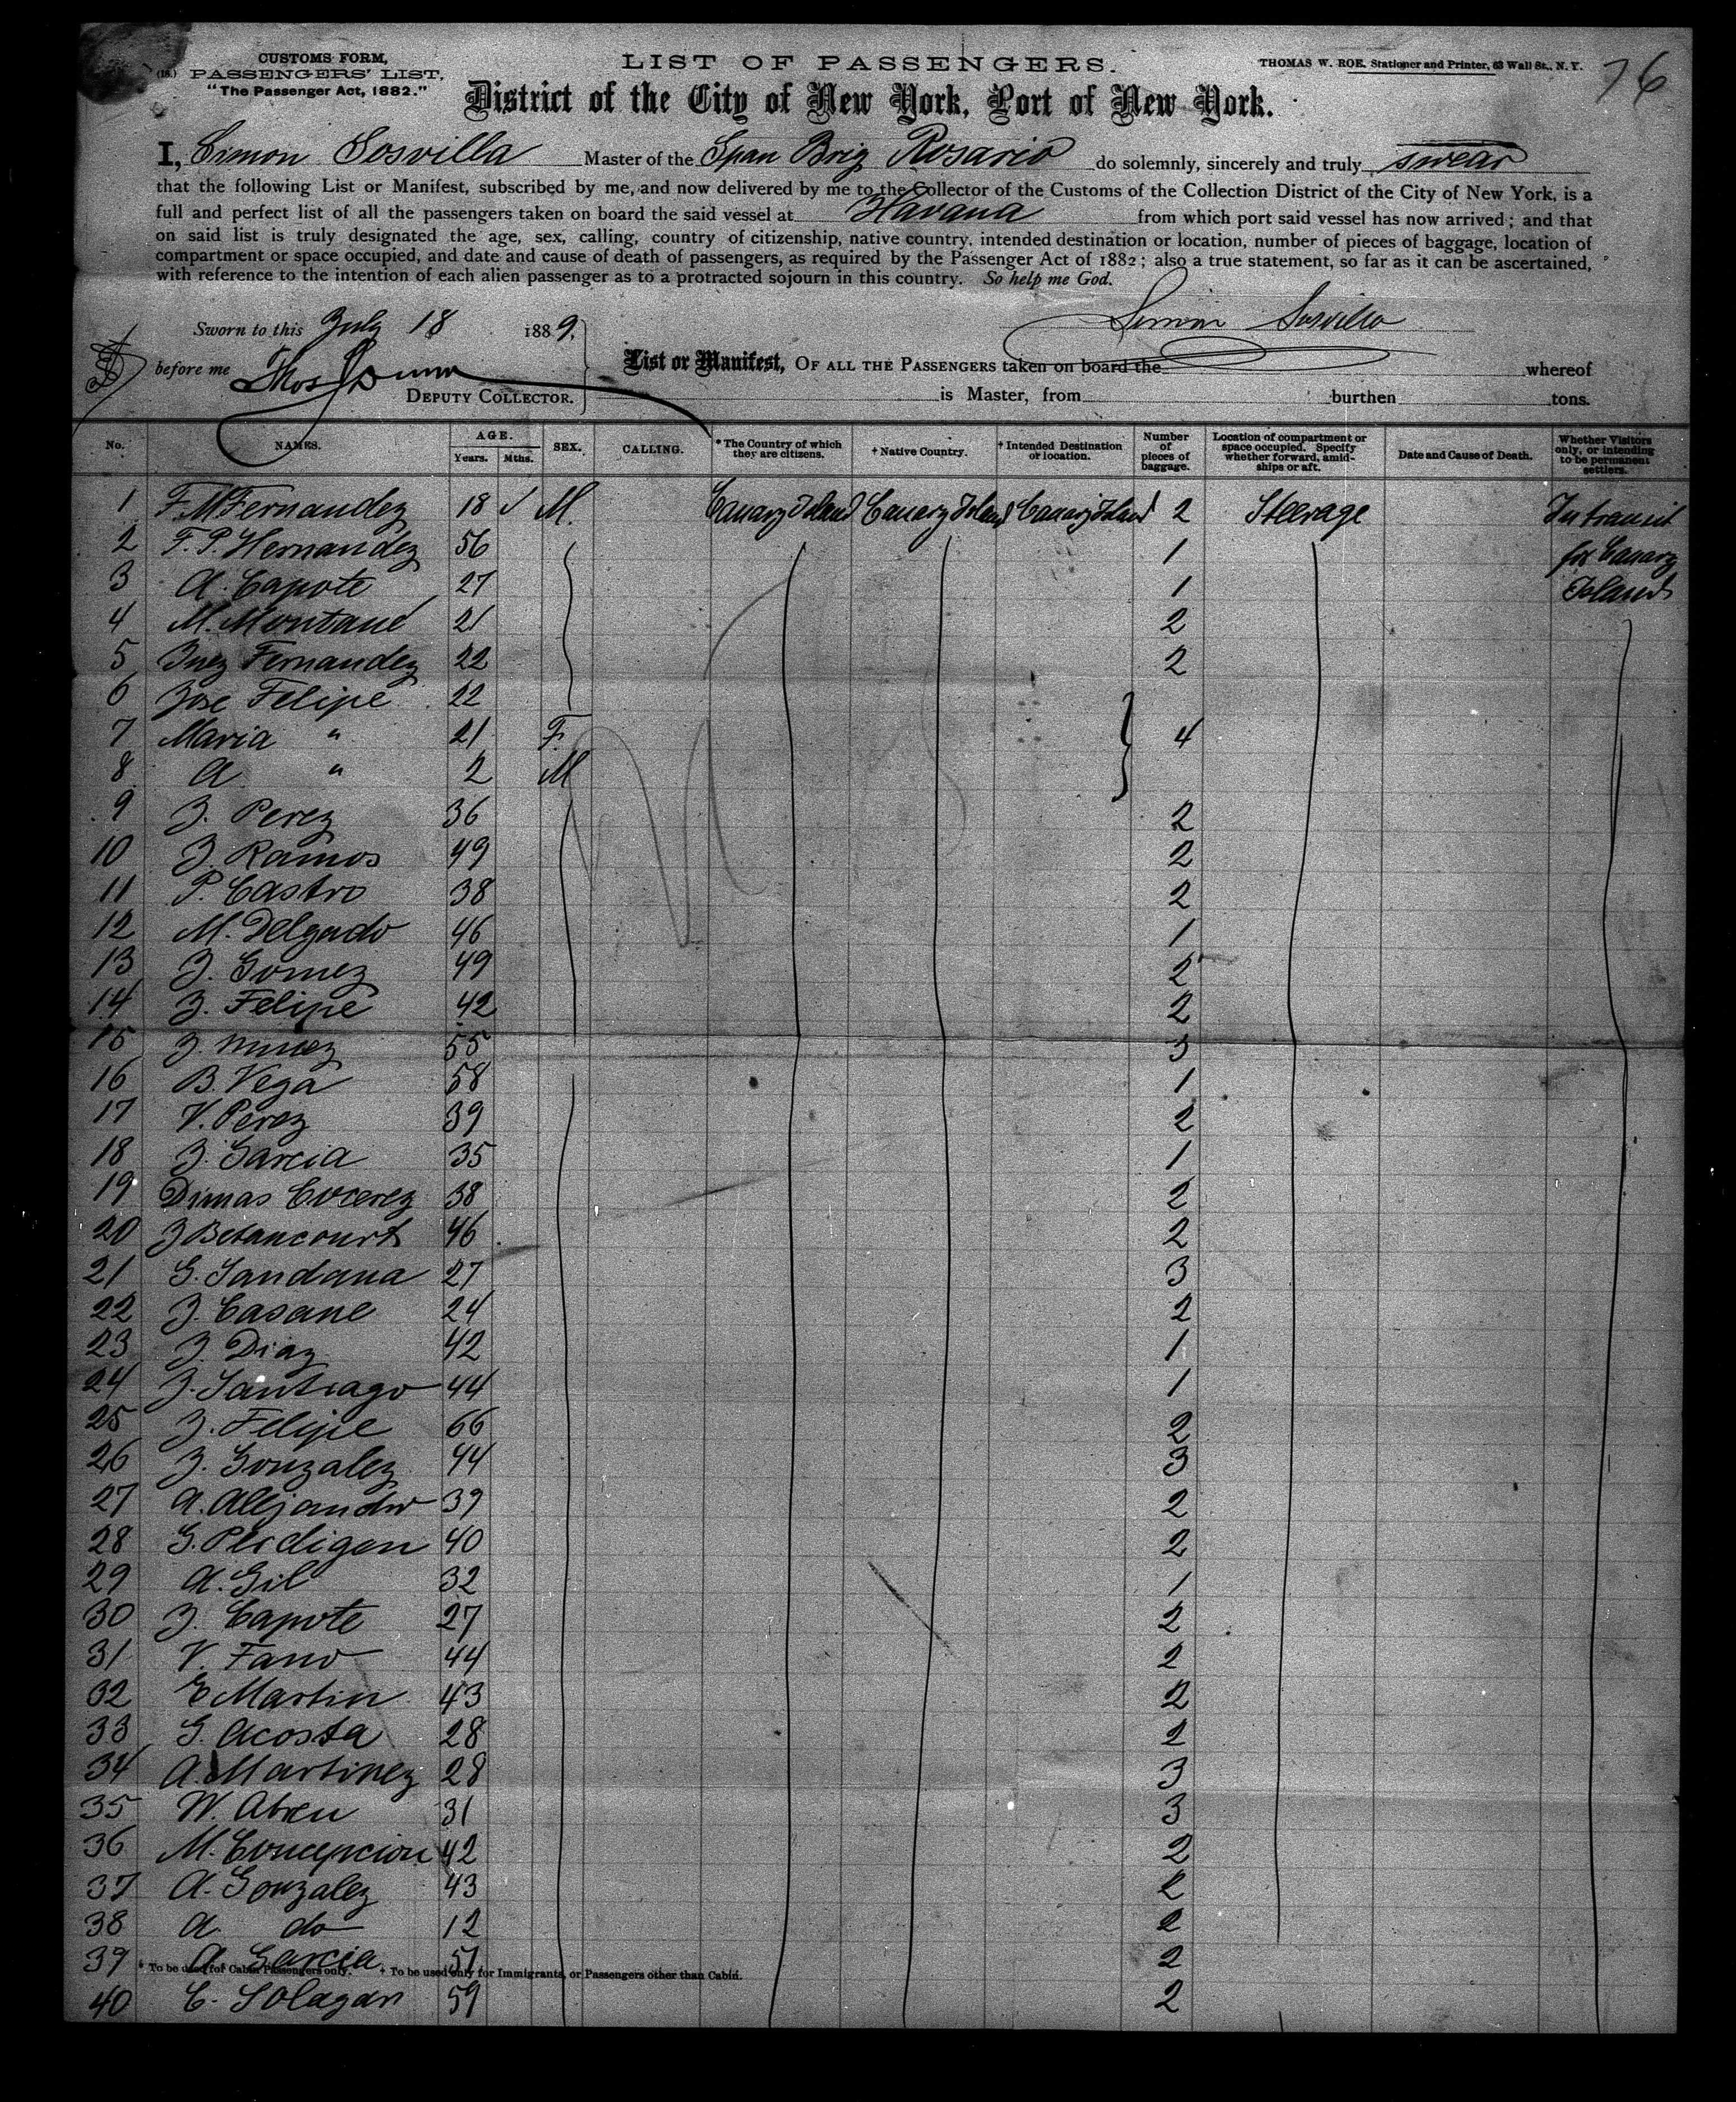 CUSTOMS FORM,
(18.) PASSENGERS' LIST.
"The Passenger Act, 1882."
LIST OF PASSENGERS.
THOMAS W. ROE, Stationer and Printer, 63 Wall St., N. Y.
76
District of the City of New York, Port of New York.
I, Simon Sosvilla Master of the Span Brig Rosario do solemnly, sincerely and truly swear
that the following List or Manifest, subscribed by me, and now delivered by me to the Collector of the Customs of the Collection District of the City of New York, is a
full and perfect list of all the passengers taken on board the said vessel at Havana from which port said vessel has now arrived; and that
on said list is truly designated the age, sex, calling, country of citizenship, native country, intended destination or location, number of pieces of baggage, location of
compartment or space occupied, and date and cause of death of passengers, as required by the Passenger Act of 1882; also a true statement, so far as it can be ascertained,
with reference to the intention of each alien passenger as to a protracted sojourn in this country. So help me God.
Simon Sosvilla
Sworn to this July 18 1889.
before me Thos Dunn
DEPUTY COLLECTOR.
List or Manifest, OF ALL THE PASSENGERS taken on board the whereof
is Master, from burthen tons.
No. NAMES. AGE. Years. Mths. SEX. CALLING. * The Country of which they are citizens. † Native Country. † Intended Destination or location. Number of pieces of baggage. Location of compartment or space occupied. Specify whether forward, amidships or aft. Date and Cause of Death. Whether Visitors only, or intending to be permanent settlers.
1 F. M Fernandez 18 ✓ M. Canary Island Canary Island Canary Island 2 Steerage In transit
2 F. P. Hernandez 56 1 for Canary
3 A. Capote 27 1 Islands
4 M. Montane 21 2
5 Inez Fernandez 22 2
6 Jose Felipe 22
7 Maria " 21 F. 4
8 A " 2 M
9 J. Perez 36 2
10 J. Ramos 49 2
11 P. Castro 38 2
12 M. Delgado 46 1
13 J. Gomez 49 2
14 J. Felipe 42 2
15 J. Nunez 55 3
16 B. Vega 58 1
17 V. Perez 39 2
18 J. Garcia 35 1
19 Dimas 38 2
20 J Betancourt 46 2
21 G. Sandana 27 3
22 J. Casane 24 2
23 J. Diaz 42 1
24 J. Santiago 44 1
25 J. Felipe 66 2
26 J. Gonzalez 44 3
27 A. Alejandro 39 2
28 G. Perdigon 40 2
29 A. Gil 32 1
30 J. Capote 27 2
31 V. Fano 44 2
32 E Martin 43 2
33 G. Acosta 28 2
34 A. Martinez 28 3
35 W. Abreu 31 3
36 M. Concepcion 42 2
37 A. Gonzalez 43 2
38 A do 12 2
39 A Garcia 57 2
* To be used for Cabin Passengers only. † To be used only for Immigrants, or Passengers other than Cabin.
40 C. Solagan 59 2